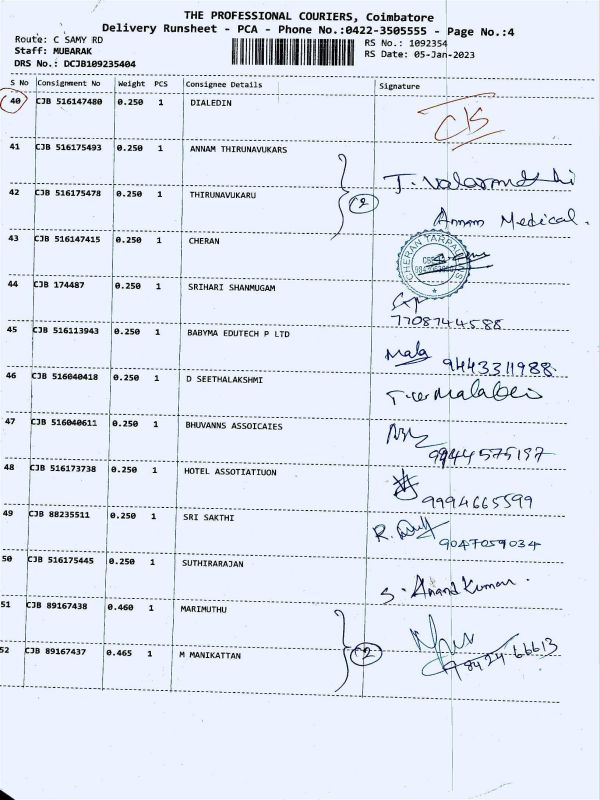 THE PROFESSIONAL COURIERS, Coimbatore
Delivery Runsheet - PCA - Phone No.:0422-3505555 - Page No.:4
Route: C SAMY RD
RS No.: 1092354
Staff: MUBARAK
RS Date: 05-Jan-2023
DRS No.: DCJB109235404
S No Consignment No Weight PCS Consignee Details Signature
40 CJB 516147480 0.250 1 DIALEDIN
41 CJB 516175493 0.250 1 ANNAM THIRUNAVUKARS
42 CJB 516175478 0.250 1 THIRUNAVUKARU 2
Annam Medical.
43 CJB 516147415 0.250 1 CHERAN
CHERAN TARPAULINS
44 CJB 174487 0.250 1 SRIHARI SHANMUGAM
7708744588
45 CJB 516113943 0.250 1 BABYMA EDUTECH P LTD
Mala 9443311988
46 CJB 516040418 0.250 1 D SEETHALAKSHMI
47 CJB 516040611 0.250 1 BHUVANNS ASSOICAIES
9944575197
48 CJB 516173738 0.250 1 HOTEL ASSOTIATIUON
9994665599
49 CJB 88235511 0.250 1 SRI SAKTHI
R. 9047059034
50 CJB 516175445 0.250 1 SUTHIRARAJAN
S. Anand Kumar.
51 CJB 89167438 0.460 1 MARIMUTHU
52 CJB 89167437 0.465 1 M MANIKATTAN 2
98424 66613